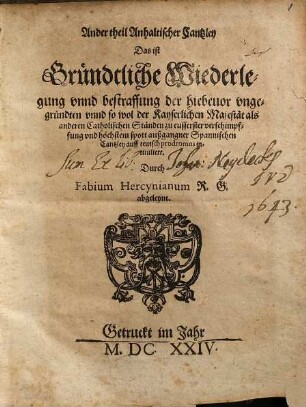 Ander theil Anhaltischer Cantzley
Das ist
Gründtliche Wiederle-
gung vnnd bestraffung der hiebeuor vnge-
gründten vnnd so wol der Kayserlichen Majestät als
anderen Catholischen Ständen zu eusserster verschimpf-
fung vnd höchstem spott außgangner Spannischen
Cantzley auff teutsch prodromus in-
tituliert.
Sum Ex Lib:
Durch
Fabium Hercynianum R. G.
abgeleynt.
1643.
Getruckt im Jahr
M. DC XXIV.